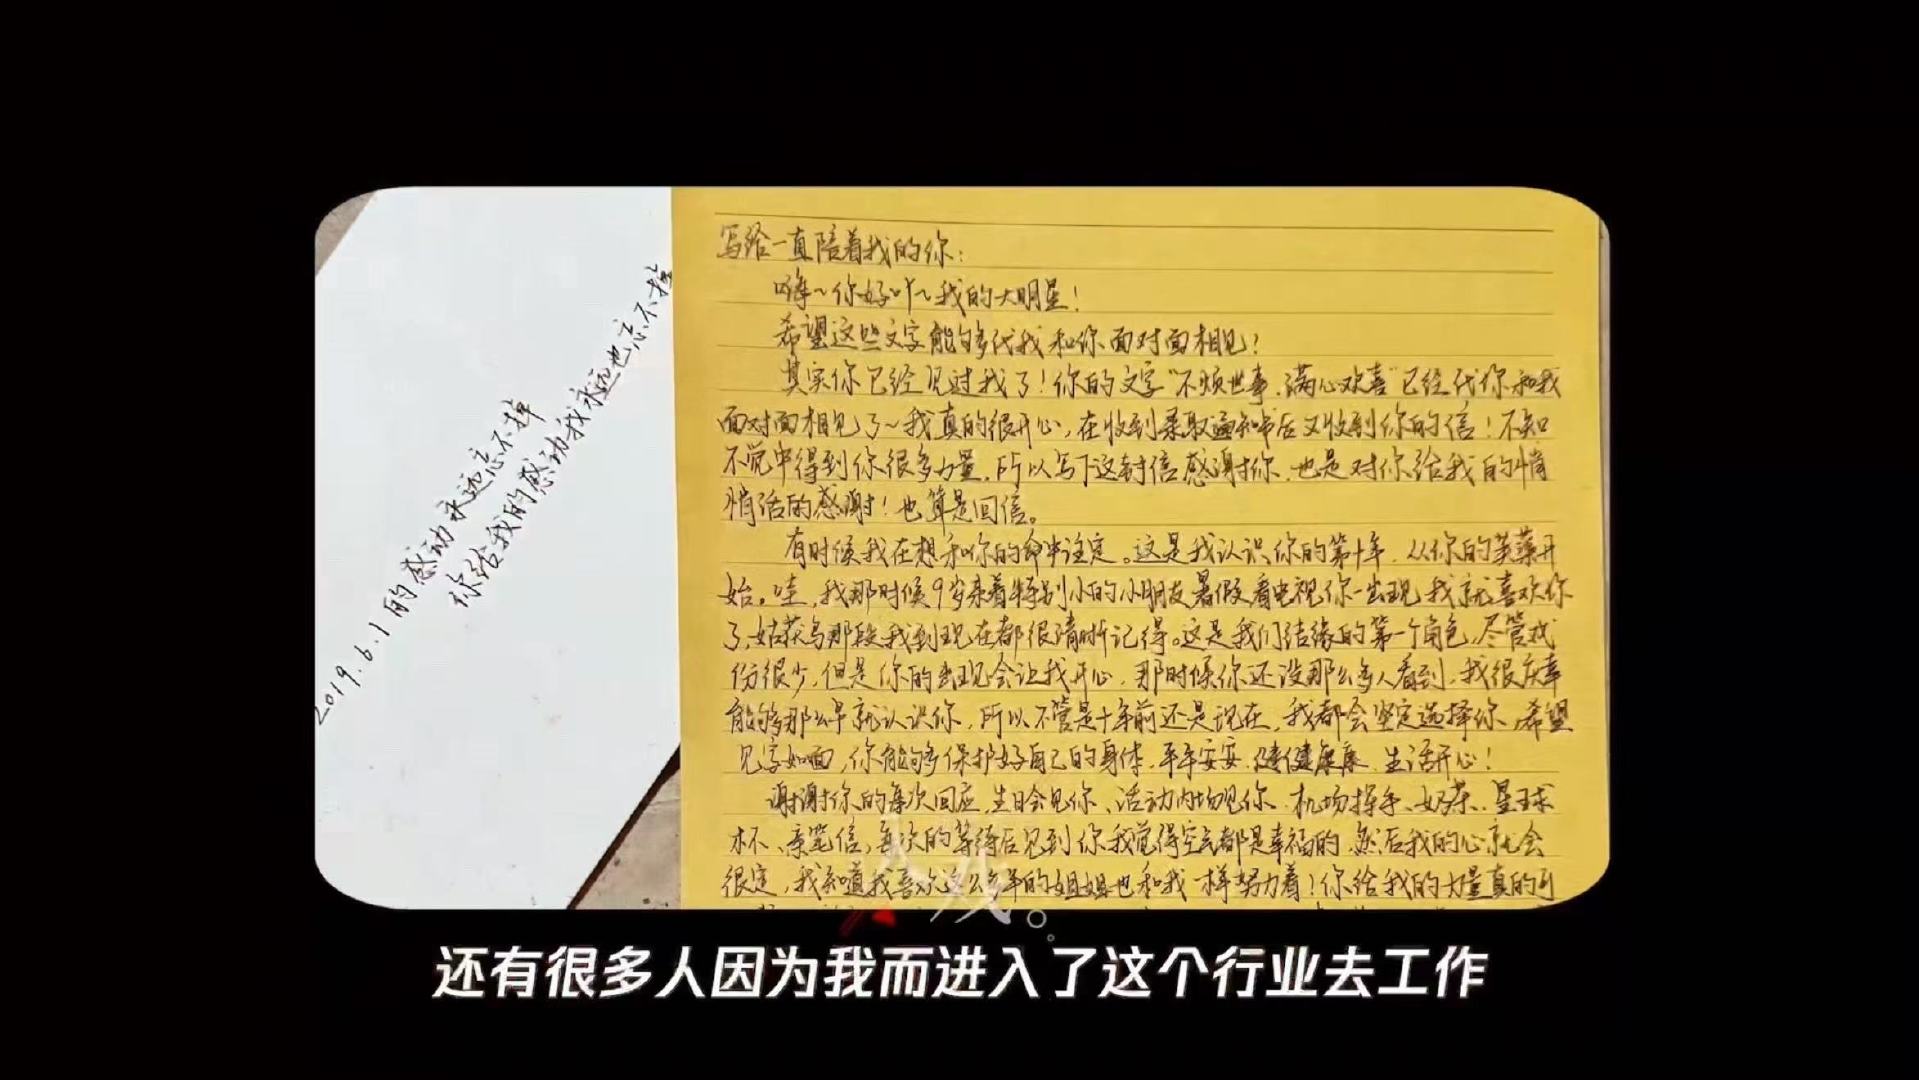 2019.6.1的感动永远忘不掉
你给我的感动我永远也忘不掉
写给一直陪着我的你：
嗨~你好吖~我的大明星！
希望这些文字能够代我和你面对面相见！
其实你已经见过我了！你的文字"不烦世事，满心欢喜"已经代你和我
面对面相见了~我真的很开心，在收到录取通知书后又收到你的信！不知
不觉中得到你很多力量，所以写下这封信感谢你，也是对你给我的悄
悄话的感谢！也算是回信。
有时候我在想和你的命中注定。这是我认识你的第十年，从你的英藻开
始。哇，我那时候9岁亲着特别小的小朋友暑假看电视你一出现我就喜欢你
了，姑获鸟那段我到现在都很清晰记得。这是我们结缘的第一个角色，尽管戏
份很少，但是你的出现会让我开心，那时候你还没那么多人看到，我很庆幸
能够那么早就认识你，所以不管是十年前还是现在，我都会坚定选择你，希望
见字如面，你能够保护好自己的身体，平平安安，健健康康，生活开心！
谢谢你的每次回应，生日会见你、活动内场见你、机场挥手、奶茶、星球
杯、亲笔信，每次的等待后见到你我觉得空气都是幸福的，然后我的心就会
很定，我知道我喜欢这么多年的姐姐也和我一样努力着！你给我的力量真的可
还有很多人因为我而进入了这个行业去工作